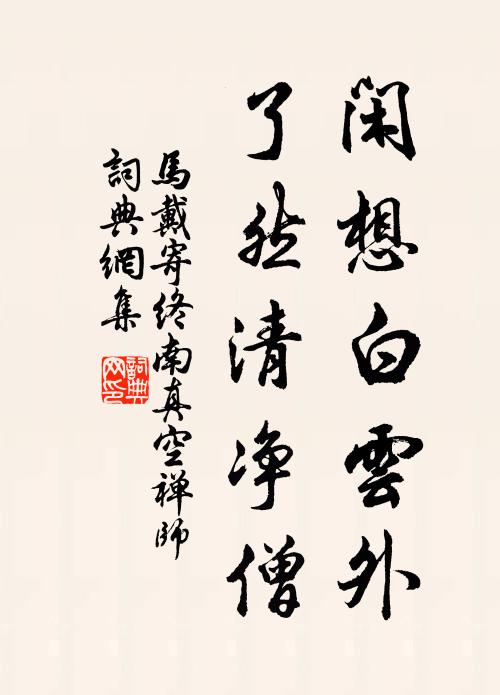 閑想白雲外
了然清净僧
馬戴寄終南真空禅師
詞典網集
詞典
网印